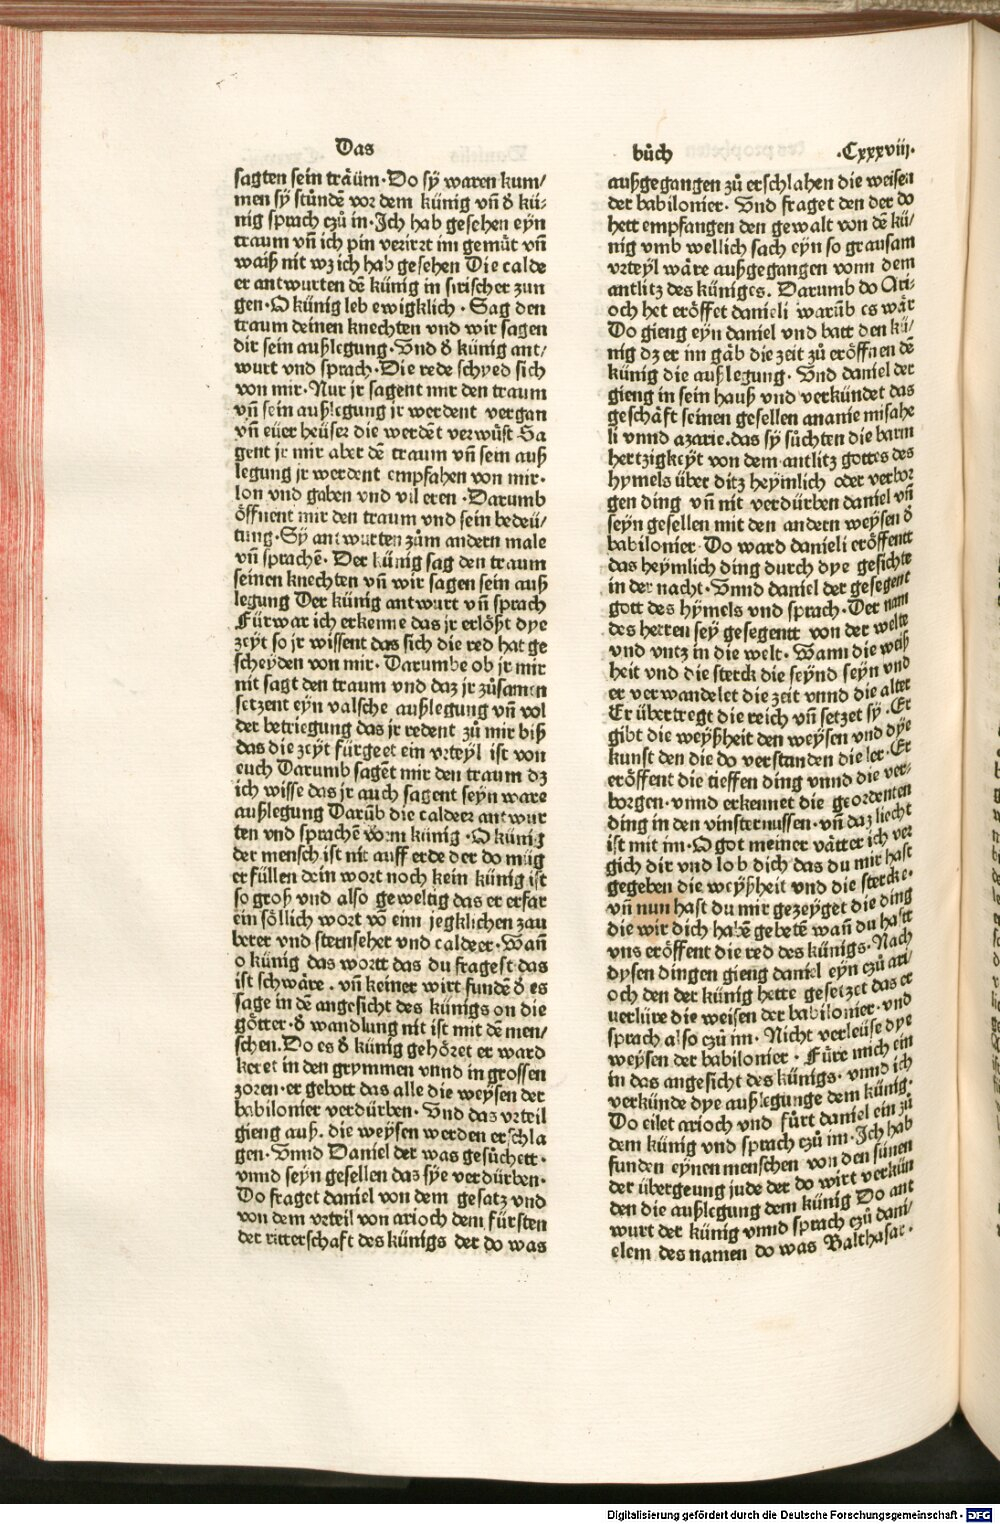 Das
bůch
.Cxxxviij.
sagten sein träüm.Do sÿ waren kum/
men sÿ stůndē vor dem künig vn̄ d̄ kü/
nig sprach czů in.Ich hab gesehen eyn
traum vn̄ ich pin verirrt im gemüt vn̄
waiß nit wz ich hab gesehen Die calde
er antwurten dē künig in sirischer zun
gen.O künig leb ewigklich . Sag den
traum deinen knechten vnd wir sagen
dir sein außlegung.Vnd d̄ künig ant/
wurt vnd sprach.Die rede schyed sich
von mir.Nur jr sagent mir den traum
vn̄ sein außlegung jr werdent vergan
vn̄ eüer heüser die werdēt verwüst Sa
gent jr mir aber dē traum vn̄ sein auß
legung jr werdent empfahen von mir.
lon vnd gaben vnd vil eren .Darumb
öffnent mir den traum vnd sein bedeü/
tung.Sÿ antwurten zům andern male
vn̄ sprachē. Der künig sag den traum
seinen knechten vn̄ wir sagen sein auß
legung Der künig antwurt vn̄ sprach
Fürwar ich erkenne das jr erlößt dye
zeyt so jr wissent das sich die red hat ge
scheyden von mir. Darumbe ob jr mir
nit sagt den traum vnd daz jr zůsamen
setzent eyn valsche außlegung vn̄ vol
der betriegung das jr redent zů mir biß
das die zeyt fürgeet ein vrteyl ist von
euch Darumb sagēt mir den traum dz
ich wisse das jr auch sagent seyn ware
außlegung Darūb die caldeer antwur
ten vnd sprachē vorm künig .O künig
der mensch ist nit auff erde der do müg
erfüllen dein wort noch kein künig ist
so groß vnd also geweltig das er erfar
ein söllich wort vō eim jegklichen zau
berer vnd sternseher vnd caldeer.Wan̄
o künig das wortt das du fragest das
ist schwäre . vn̄ keiner wirt fundē d̄ es
sage in dē angesicht des künigs on die
götter.d̄ wandlung nit ist mit dē men/
schen.Do es d̄ künig gehöret er ward
keret in den grymmen vnnd in grossen
zoren.er gebott das alle die weysen der
babilonier verdürben. Vnd das vrteil
gieng auß. die weysen werden erschla
gen.Vnnd Daniel der was gesůchett.
vnnd seyn gesellen das sÿe verdürben.
Do fraget daniel von dem gesatz vnd
von dem vrteil von arioch dem fürsten
der ritterschaft des künigs der do was
außgegangen zů erschlahen die weisen
der babilonier. Vnd fraget den der do
hett empfangen den gewalt von dē kü/
nig vmb wellich sach eyn so grausam
vrteyl wäre außgegangen vonn dem
antlitz des küniges. Darumb do Ari/
och het eröffet danieli warūb es wär
Do gieng eyn daniel vnd batt den kü/
nig dz er im gäb die zeit zů eröffnen dē
künig die außlegung. Vnd daniel der
gieng in sein hauß vnd verkündet das
geschäft seinen gesellen ananie misahe
li vnnd azarie.das sÿ sůchten die barm
hertzigkeyt von dem antlitz gottes des
hymels über ditz heymlich oder verbor
gen ding vn̄ nit verdürben daniel vn̄
seyn gesellen mit den andern weysen d̄
babilonier Do ward danieli eröffentt
das heymlich ding durch dye gesichte
in der nacht.Vnnd daniel der gesegent
gott des hÿmels vnd sprach.Der nam
des herren sey gesegentt von der welte
vnd vntz in die welt. Wann die weiß
heit vnd die sterck die seynd seyn vnd
er verwandelet die zeit vnnd die alter
Er übertregt die reich vn̄ setzet sÿ .Er
gibt die weyßheit den weysen vnd dye
kunst den die do verstanden die ler.Er
eröffent die tieffen ding vnnd die ver/
borgen.vnnd erkennet die geordenten
ding in den vinsternussen.vn̄ daz liecht
ist mit im.O got meiner vätter ich ver
gich dir vnd lob dich das du mir hast
gegeben die weyßheit vnd die stercke.
vn̄ nun hast du mir gezeyget die ding
die wir dich habē gebetē wan̄ du hast
vns eröffent die red des künigs. Nach
dysen dingen gieng daniel eyn czů ari/
och den der künig hette gesetzet das er
verlüre die weisen der babilonier.vnd
sprach also czů im. Nicht verleüse dye
weysen der babilonier . Füre mich ein
in das angesicht des künigs. vnnd ich
verkünde dye außlegunge dem künig.
Do eilet arioch vnd fürt daniel ein zů
dem künig vnd sprach czů im.Ich hab
funden eynen menschen von den sünen
der übergeung jude der do wirt verkün
den die außlegung dem künig Do ant
wurt der künig vnnd sprach czů dani/
elem des namen do was Balthasar.
Digitalisierung gefördert durch die Deutsche Forschungsgemeinschaft - DFG